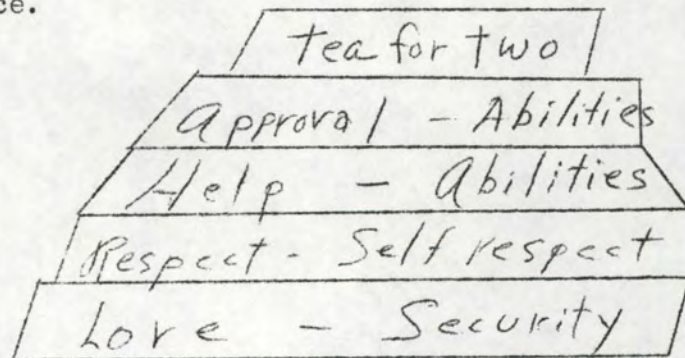 ce.
tea for two
Approval - Abilities
Help - Abilities
Respect - Self respect
Love - Security